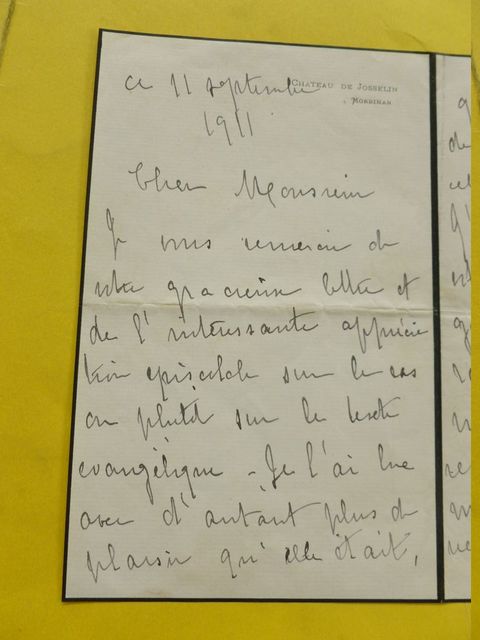 CHATEAU DE JOSSELIN
MORBIHAN
ce 11 septembre
1911
Cher Monsieur
Je vous remercie de
votre gracieuse lettre et
de l'intéressante apprécia
tion episcopale sur le cas
ou plutôt sur le texte
evangélique - Je l'ai lue
avec d'autant plus de
plaisir qu'elle était,